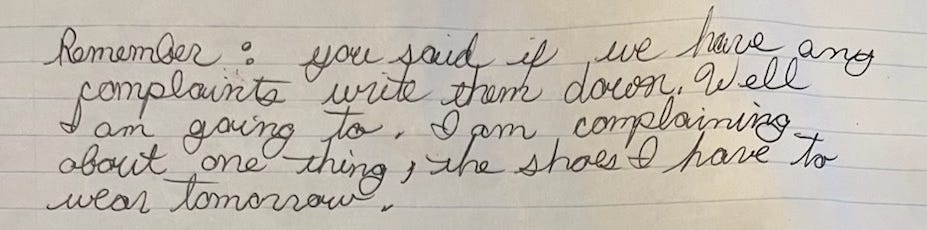 Remember: you said if we have any
complaints write them down. Well
I am going to. I am complaining
about one thing, the shoes I have to
wear tomorrow.